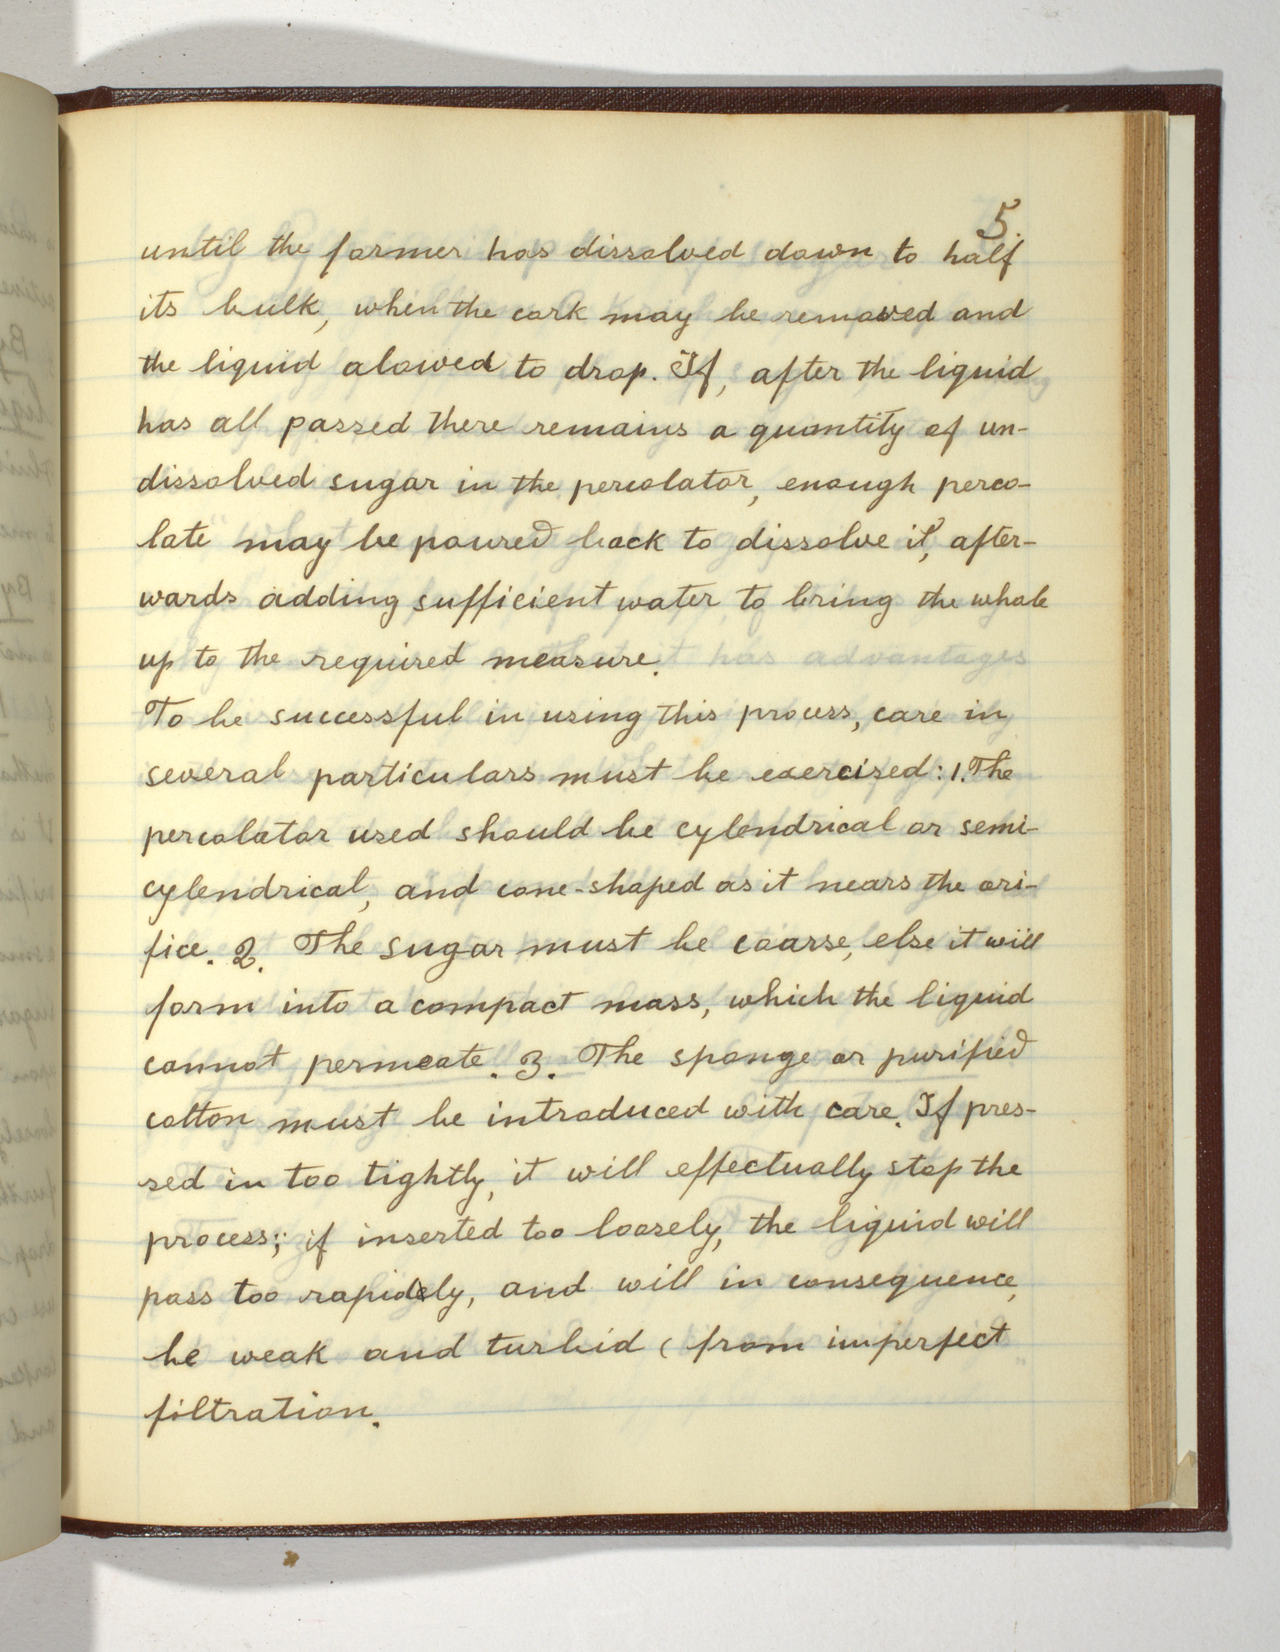 5.
until the former has dissolved down to half
its bulk, when the cork may be removed and
the liquid alowed to drop. If, after the liquid
has all passed there remains a quantity of un-
dissolved sugar in the percolator, enough perco-
late may be poured back to dissolve it, after-
wards adding sufficient water to bring the whole
up to the required measure.
To be successful in using this process, care in
several particulars must be exercised: 1. The
percolator used should be cylendrical or semi-
cylendrical, and cone-shaped as it nears the ori-
fice. 2. The sugar must be coarse, else it will
form into a compact mass, which the liquid
cannot permeate. 3. The sponge or purified
cotton must be introduced with care. If pres-
sed in too tightly, it will effectually stop the
process; if inserted too loosely, the liquid will
pass too rapidly, and will in consequence,
be weak and turbid (from imperfect
filtration.